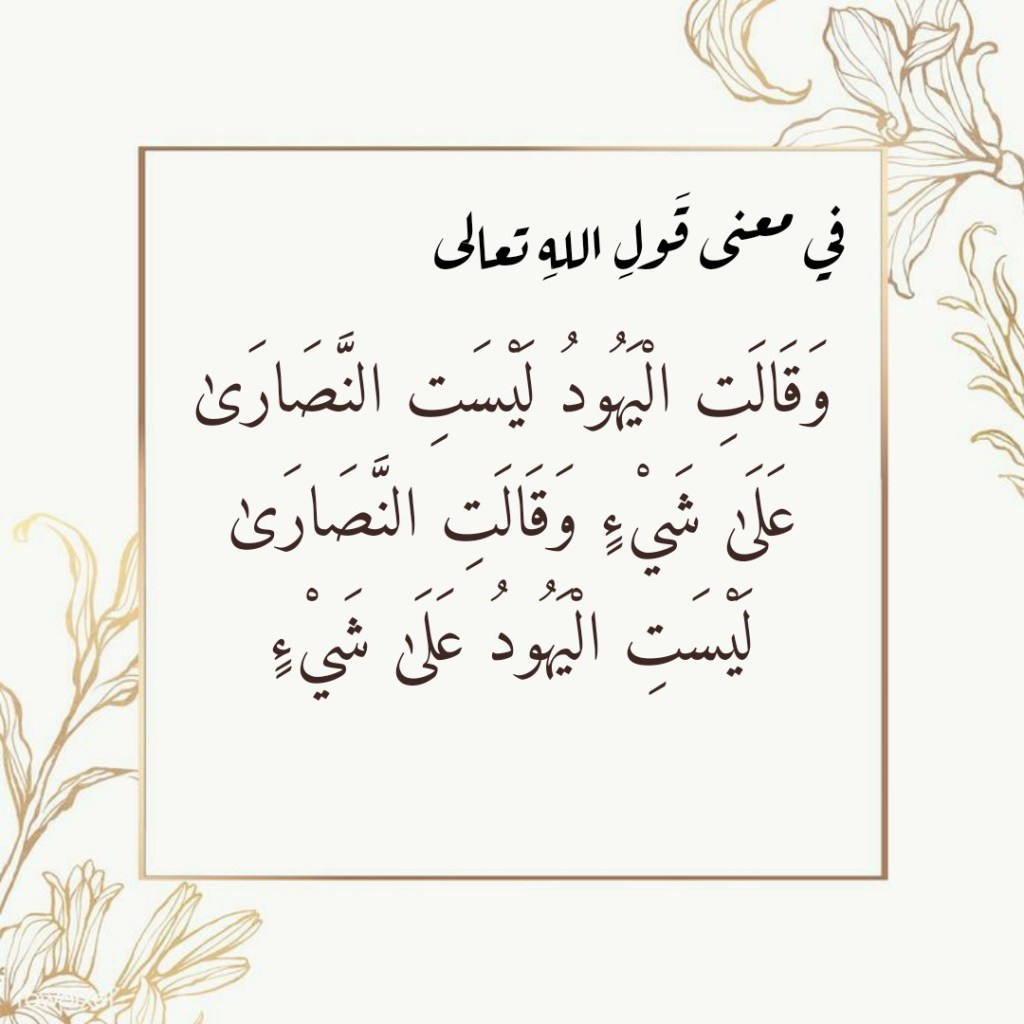 في معنى قَولِ اللهِ تعالى
وَقَالَتِ الْيَهُودُ لَيْسَتِ النَّصَارَىٰ
عَلَىٰ شَيْءٍ وَقَالَتِ النَّصَارَىٰ
لَيْسَتِ الْيَهُودُ عَلَىٰ شَيْءٍ
rawpixel